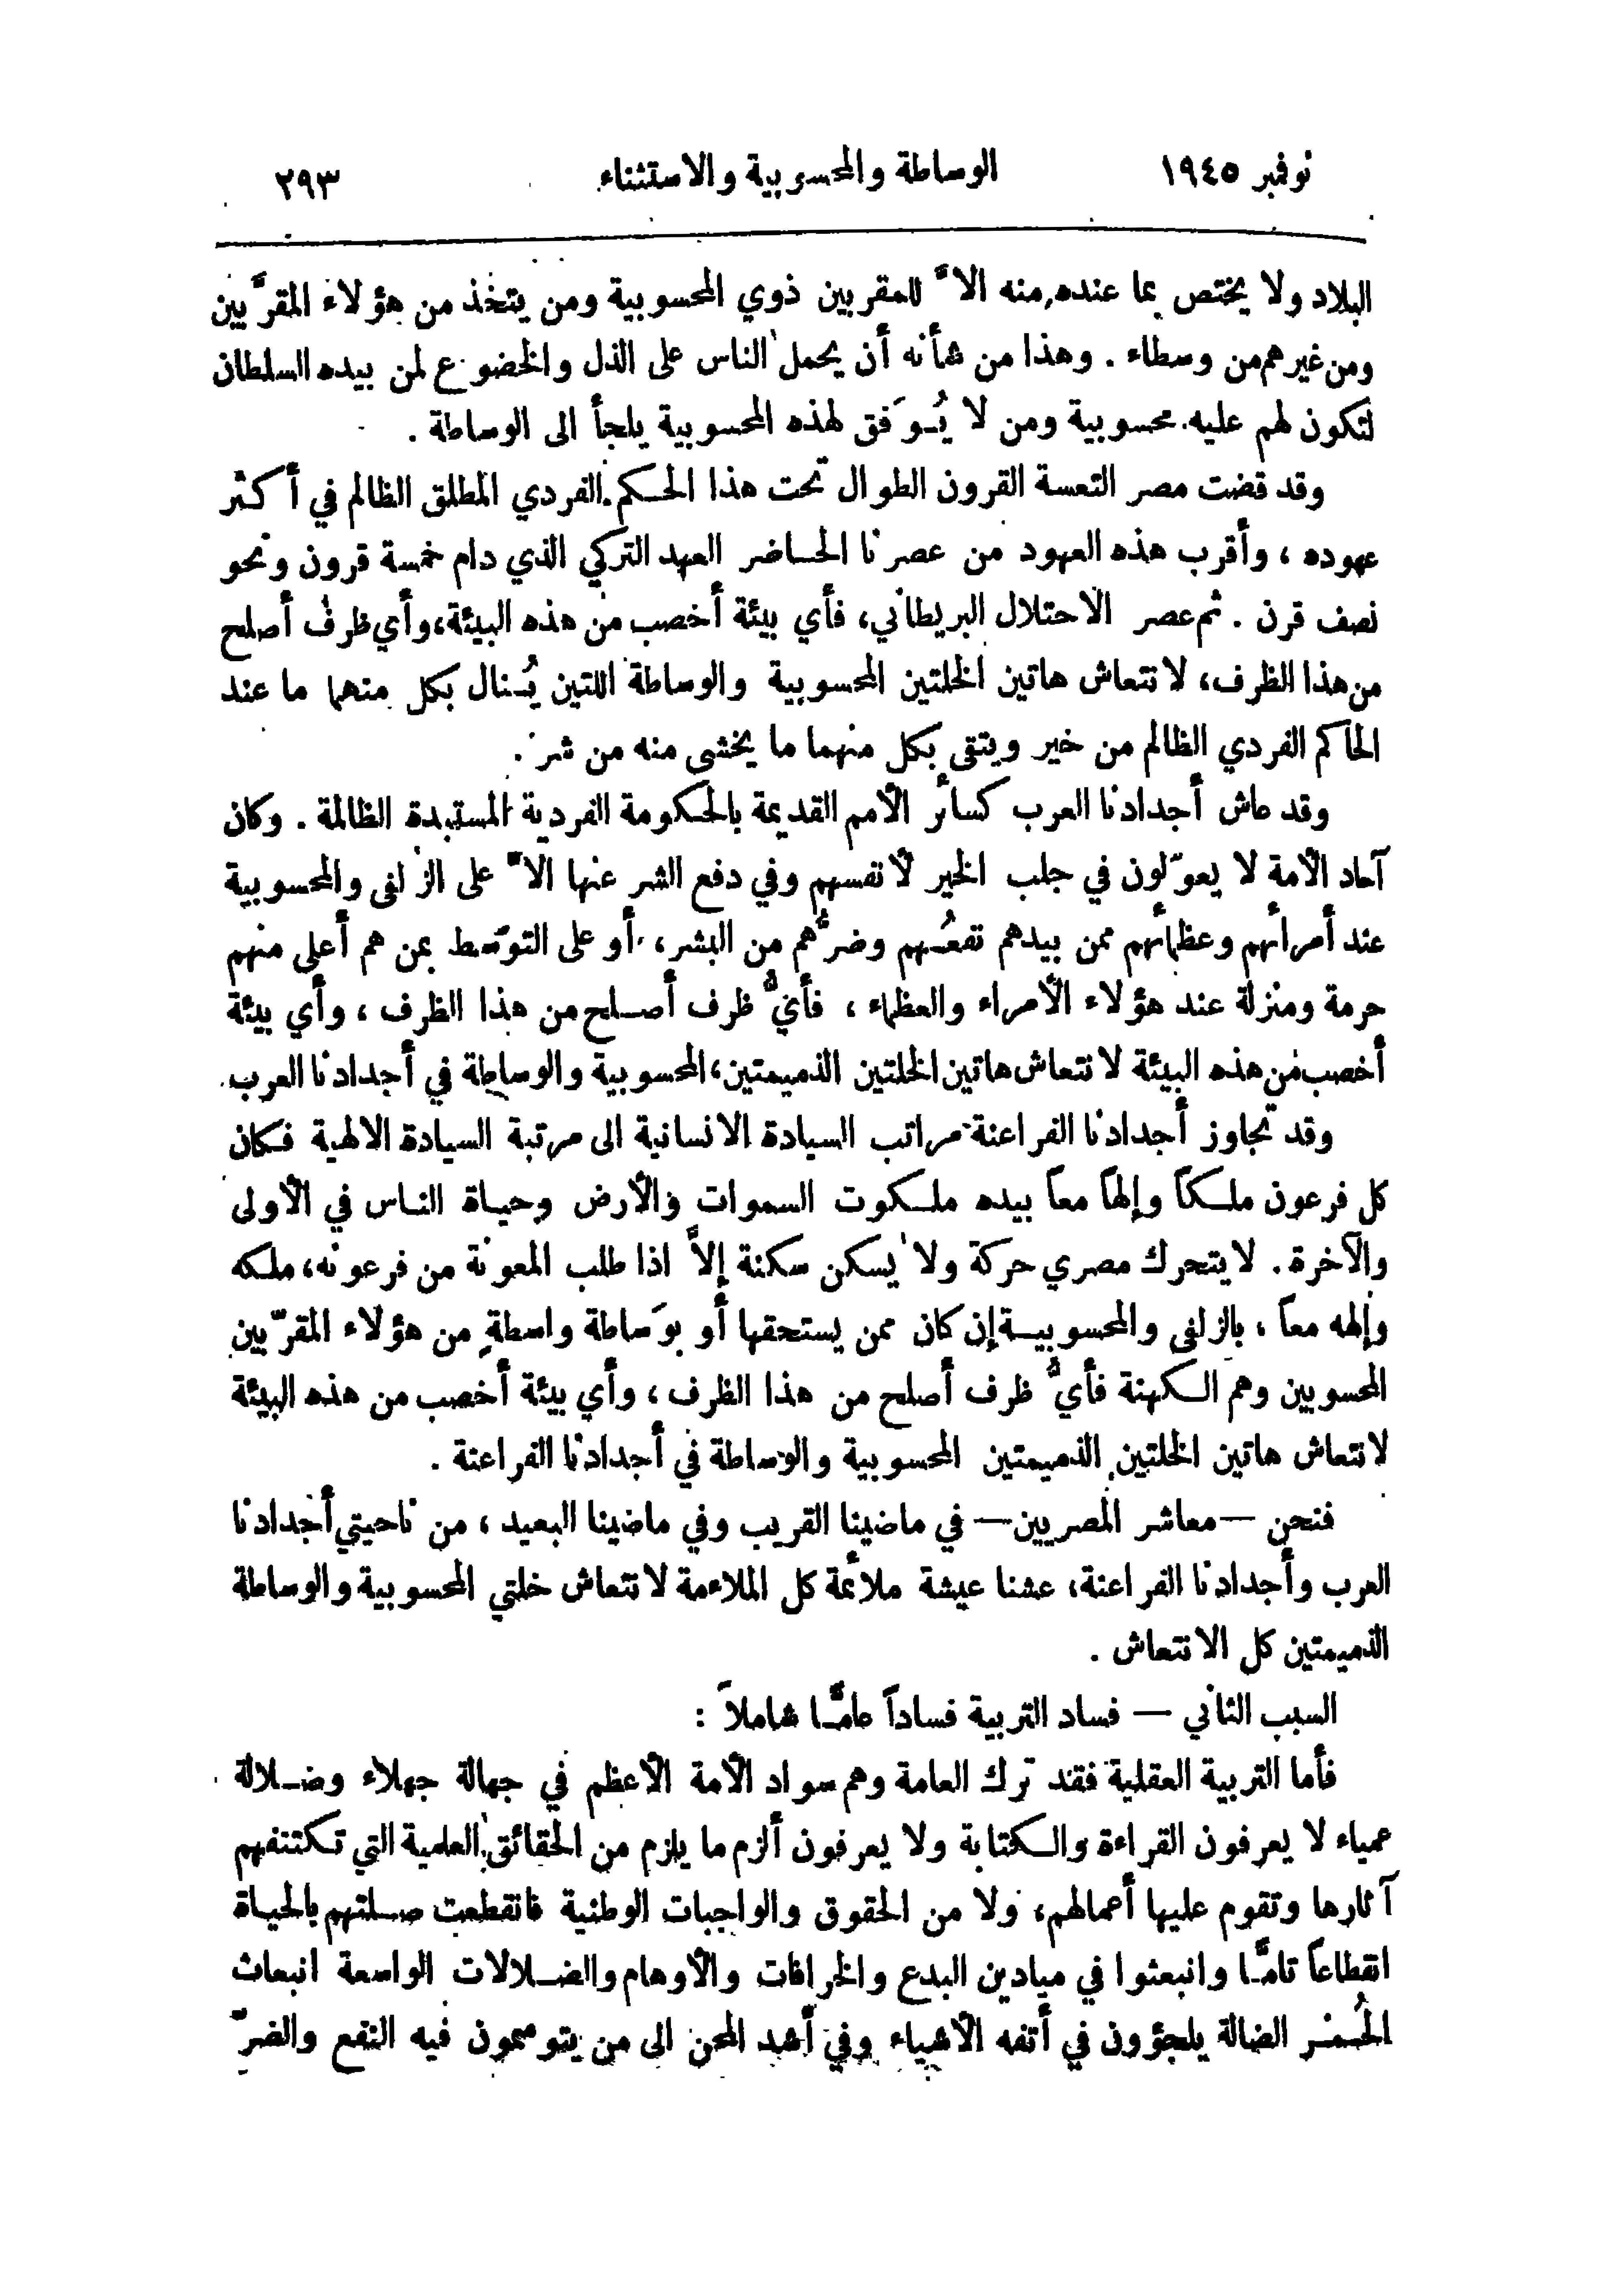 نوفمبر ١٩٤٥ الوساطة والمحسوبية والاستثناء ٢٩٣
البلاد ولا يختص بما عنده منه الاّ للمقربين ذوي المحسوبية ومن يتخذ من هؤلاء المقرَّبين
ومن غيرهم من وسطاء . وهذا من شأنه أن يحمل الناس على الذل والخضوع لمن بيده السلطان
لتكون لهم عليه محسوبية ومن لا يُـوَفق لهذه المحسوبية يلجأ الى الوساطة .
وقد قضت مصر التعسة القرون الطوال تحت هذا الحكم الفردي المطلق الظالم في أكثر
عهوده ، وأقرب هذه العهود من عصرنا الحاضر العهد التركي الذي دام خمسة قرون ونحو
نصف قرن . ثم عصر الاحتلال البريطاني، فأي بيئة أخصب من هذه البيئة، وأي ظرف أصلح
من هذا الظرف، لانتعاش هاتين الخلتين المحسوبية والوساطة اللتين يُـنال بكل منهما ما عند
الحاكم الفردي الظالم من خير ويتقى بكل منهما ما يخشى منه من شر .
وقد عاش أجدادنا العرب كسائر الأمم القديمة بالحكومة الفردية المستبدة الظالمة . وكان
آحاد الأمة لا يعوّلون في جلب الخير لأنفسهم وفي دفع الشر عنها الاّ على الزلفى والمحسوبية
عند أمرائهم وعظمائهم ممن بيدهم نفعُـهم وضرُّهم من البشر، أو على التوسّط بمن هم أعلى منهم
حرمة ومنزلة عند هؤلاء الأمراء والعظماء ، فأيُّ ظرف أصلح من هذا الظرف ، وأي بيئة
أخصب من هذه البيئة لانتعاش هاتين الخلتين الذميمتين، المحسوبية والوساطة في أجدادنا العرب.
وقد تجاوز أجدادنا الفراعنة مراتب السيادة الانسانية الى مرتبة السيادة الالهية فكان
كل فرعون ملكاً وإلهاً معاً بيده ملكوت السموات والأرض وحياة الناس في الأولى
والآخرة . لا يتحرك مصري حركة ولا يسكن سكنة إلاَّ اذا طلب المعونة من فرعونه، ملكه
وإلهه معاً ، بالزلفى والمحسوبية إن كان ممن يستحقها أو بوَساطة واسطةٍ من هؤلاء المقرّبين
المحسوبين وهم الكهنة فأيُّ ظرف أصلح من هذا الظرف ، وأي بيئة أخصب من هذه البيئة
لانتعاش هاتين الخلتين الذميمتين المحسوبية والوساطة في أجدادنا الفراعنة .
فنحن — معاشر المصريين — في ماضينا القريب وفي ماضينا البعيد ، من ناحيتي أجدادنا
العرب وأجدادنا الفراعنة، عشنا عيشة ملائمة كل الملاءمة لانتعاش خلتي المحسوبية والوساطة
الذميمتين كل الانتعاش .
السبب الثاني — فساد التربية فساداً عامًّـا شاملاً :
فأما التربية العقلية فقد ترك العامة وهم سواد الأمة الأعظم في جهالة جهلاء وضلالة
عمياء لا يعرفون القراءة والكتابة ولا يعرفون ألزم ما يلزم من الحقائق العلمية التي تكتنفهم
آثارها وتقوم عليها أعمالهم، ولا من الحقوق والواجبات الوطنية فانقطعت صلتهم بالحياة
انقطاعاً تامًّـا وانبعثوا في ميادين البدع والخرافات والأوهام والضلالات الواسعة انبعاث
الحُـمُـر الضالة يلجؤون في أتفه الأشياء وفي أشد المحن الى من يتوسمون فيه النفع والضرّ